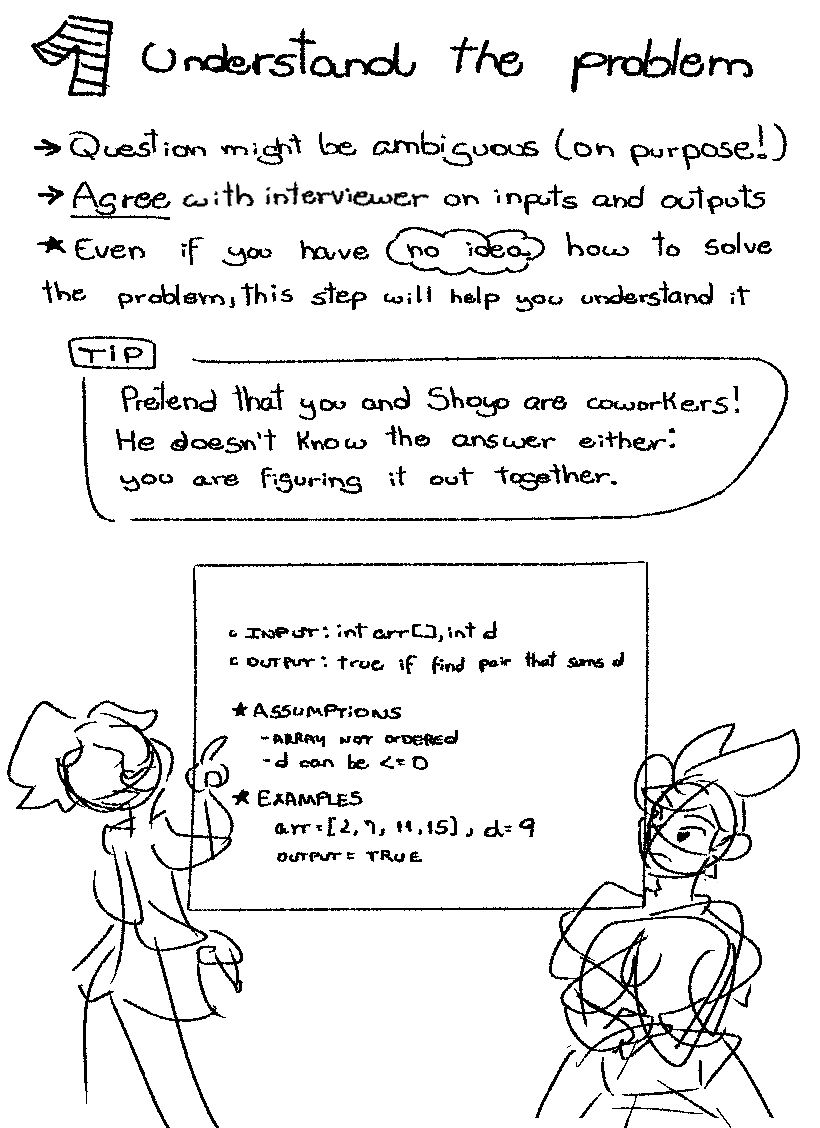 1 Understand the problem
→ Question might be ambiguous (on purpose!)
→ Agree with interviewer on inputs and outputs
★ Even if you have no idea how to solve
the problem, this step will help you understand it
TIP
Pretend that you and Shoyo are coworkers!
He doesn't know the answer either:
you are figuring it out together.
INPUT: int arr[], int d
OUTPUT: true if find pair that sums d
★ ASSUMPTIONS
- ARRAY NOT ORDERED
- d can be <= 0
★ EXAMPLES
arr = [2, 7, 11, 15], d = 9
OUTPUT = TRUE